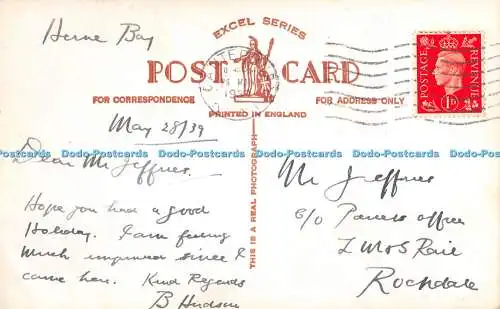 Herne Bay
EXCEL SERIES
POST CARD
FOR CORRESPONDENCE
FOR ADDRESS ONLY
PRINTED IN ENGLAND
THIS IS A REAL PHOTOGRAPH
POSTAGE REVENUE
1D
May 28/39
Dear Mr Jeffries.
Hope you had a good
Holiday. I am feeling
much improved since I
came here. Kind Regards
B Hudson
Mr Jeffries
c/o Parcels office
L M & S Rail
Rochdale
Dodo-Postcards Dodo-Postcards Dodo-Postcards Dodo-Postcards Dodo-Postcards Dodo-Postcards